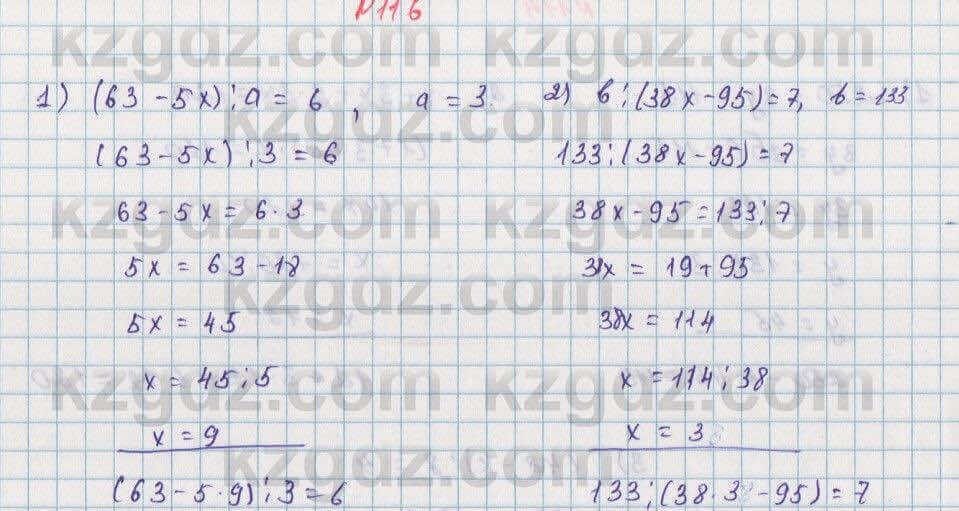 №116
1) (63 - 5x) : a = 6, a = 3.
(63 - 5x) : 3 = 6
63 - 5x = 6 · 3
5x = 63 - 18
5x = 45
x = 45 : 5
x = 9
(63 - 5 · 9) : 3 = 6
2) b : (38x - 95) = 7, b = 133
133 : (38x - 95) = 7
38x - 95 = 133 : 7
38x = 19 + 95
38x = 114
x = 114 : 38
x = 3
133 : (38 · 3 - 95) = 7
kzgdz.com
kzgdz.com
kzgdz.com
kzgdz.com
kzgdz.com
kzgdz.com
kzgdz.com
kzgdz.com